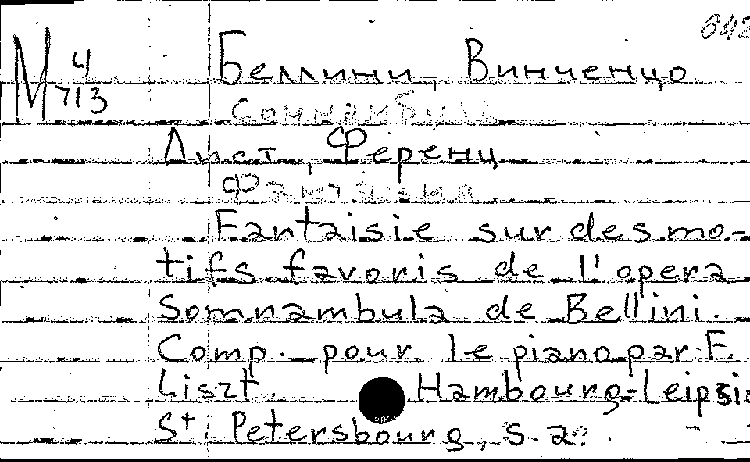 М 4
713
Беллини, Винченцо
Соннамбула
Лист, Ференц
Фантазия
Fantaisie sur des mo-
tifs favoris de l'opera
Somnambula de Bellini.
Comp. pour le piano par F.
Liszt. Hambourg-Leipzig
St. Petersbourg, s.a.